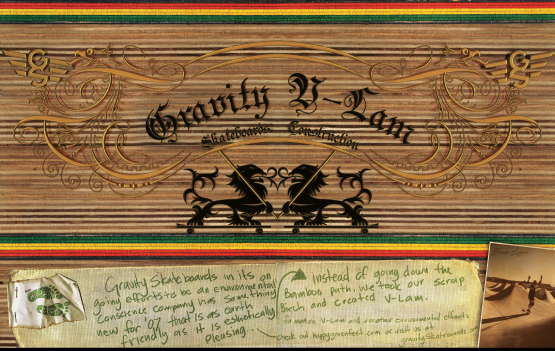 Gravity V-Lam
Skateboards Construction
Gravity Skateboards in its on
going efforts to be an environmental
Conscience company has something
new for '07 that is as earth
friendly as it is esthetically
pleasing
instead of going down the
Bamboo path, we took our scrap
Birch and created V-Lam.
V-Lam and other Environmental efforts
check out happygreenfeet.com or visit us at
gravityskateboards.com